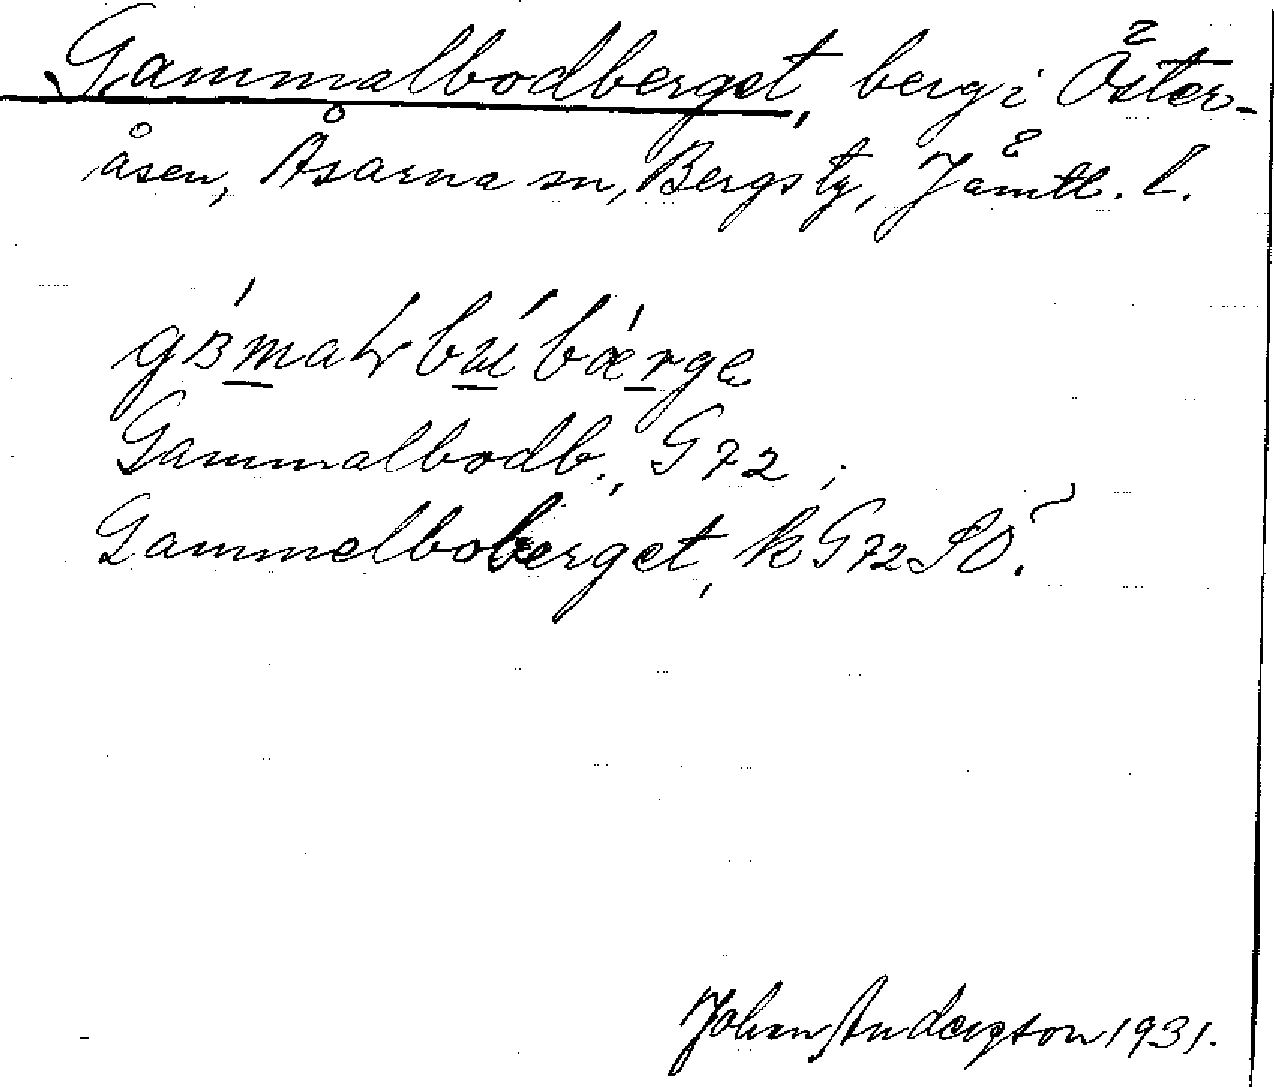 Gammalbodberget, berg i Öster-
åsen, Åsarna sn, Bergs tg, Jämtl. l.
Gammalbodb., G 72;
Gammelboberget, k G 72 SO.
Johan Anderson 1931.